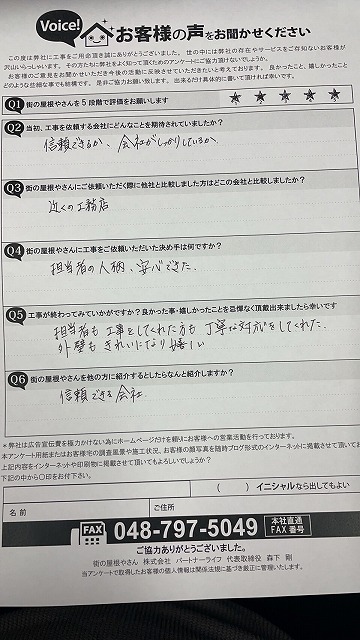 Voice!
お客様の声をお聞かせください
この度は弊社に工事をご用命頂き誠にありがとうございました。世の中には弊社の存在やサービスをご存知ないお客様が
沢山いらっしゃいます。その方たちに弊社をよく知って頂くためのアンケートにご協力頂けないでしょうか。
お客様のご意見をお聞かせいただき今後の活動に反映させていただきたいと考えております。良かったこと、嬉しかったこと
どのような些細な事でも結構です。是非ご協力お願い致します。出来るだけ具体的に書いて頂ければ幸いです。
Q1 街の屋根やさんを5段階で評価をお願いします ★ ★ ★ ★ ★
Q2 当初、工事を依頼する会社にどんなことを期待されていましたか?
信頼できるか、会社がしっかりしているか、
Q3 街の屋根やさんにご依頼いただく際に他社と比較しました方はどこの会社と比較しましたか?
近くの工務店
Q4 街の屋根やさんに工事をご依頼いただいた決め手は何ですか?
担当者の人柄、安心できた、
Q5 工事が終わってみていかがですか?良かった事・嬉しかったことを忌憚なく頂戴出来ましたら幸いです
担当者も工事をしてくれた方も丁寧な対応をしてくれた。
外壁もきれいになり嬉しい
Q6 街の屋根やさんを他の方に紹介するとしたらなんと紹介しますか?
信頼できる会社
*弊社は広告宣伝費を極力かけない為にホームページだけを頼りにお客様への営業活動を行っております。
本アンケート用紙またはお客様宅の調査風景や施工状況、お客様の顔写真を随時ブログ形式のインターネットに掲載させて頂いてお
上記内容をインターネットや印刷物に掲載させて頂いてもよろしいでしょうか?
下記の中から〇印をお付下さい。
( ) イニシャルなら出してもよい
名前
ご住所
FAX 048-797-5049 本社直通 FAX番号
ご協力ありがとうございました。
街の屋根やさん 株式会社 パートナーライフ 代表取締役 森下 剛
当アンケートで取得したお客様の個人情報は関係法規に基づき厳正に管理いたします。